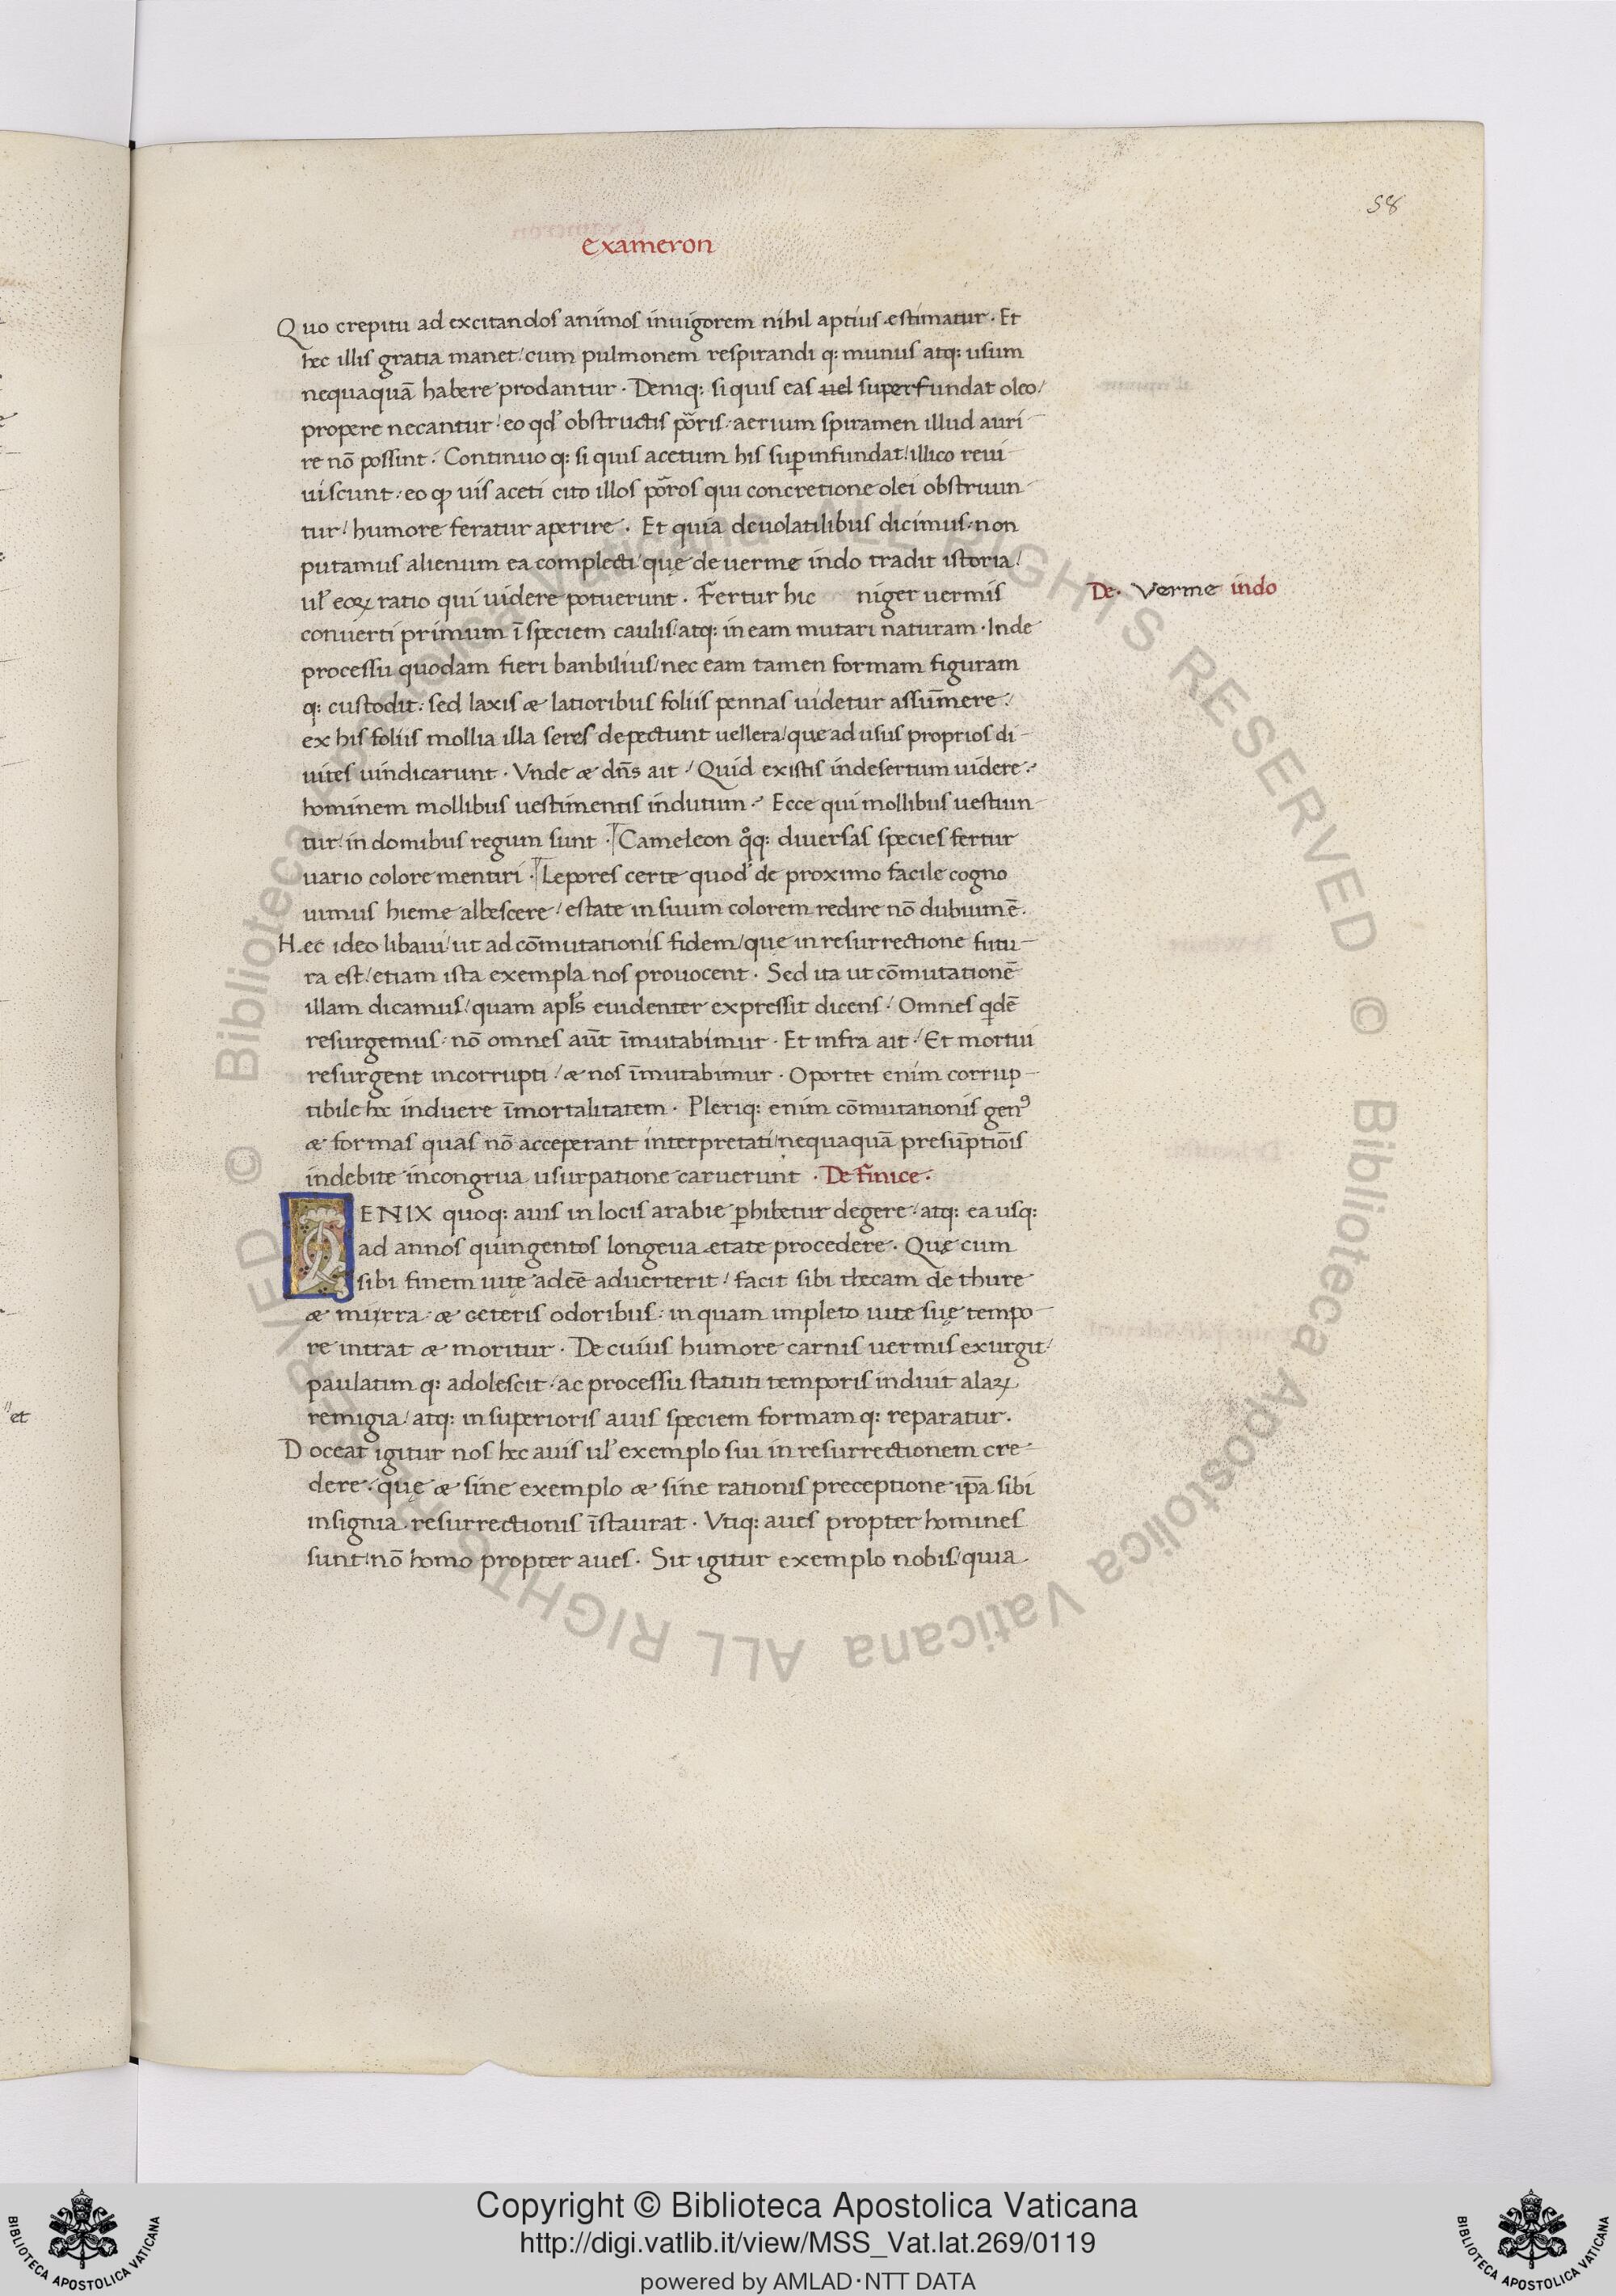 58
exameron
Quo crepitu ad excitandos animos inuigorem nihil aptius estimatur · Et
hec illis gratia manet / cum pulmonem respirandi q: munus atq: usum
nequaquā habere prodantur · Deniq: si quis eas uel superfundat oleo /
propere necantur / eo qđ obstructis poris / aerium spiramen illud auri
re nō possint · Continuo q: si quis acetum his suꝑinfundat / illico reui
uiscunt / eo ꝙ uis aceti cito illos poros qui concretione olei obstruun
tur / humore feratur aperire · Et quia deuolatilibus dicimus · non
putamus alienum ea complecti / quę de uerme indo tradit istoria /
ul̓ eoꝝ ratio qui uidere potuerunt · Fertur hic niger uermis
De · Verme indo
conuerti primum ī speciem caulis / atq: in eam mutari naturam · Inde
processu quodam fieri banbilius / nec eam tamen formam figuram
q: custodit · sed laxis æ latioribus foliis pennas uidetur assūmere /
ex his foliis mollia illa seres depectunt uellera / que ad usus proprios di
uites uindicarunt · Vnde æ dn̄s ait / Quid existis indesertum uidere ·
hominem mollibus uestimentis indutum · Ecce qui mollibus uestiun
tur / in domibus regum sunt · Cameleon qͦq: diuersas species fertur
uario colore mentiri · Lepores certe quod de proximo facile cogno
uimus hieme albescere / estate in suum colorem redire nō dubium ē ·
Hec ideo libaui / ut ad cōmutationis fidem / que in resurrectione futu
ra est / etiam ista exempla nos prouocent · Sed ita ut cōmutationē
illam dicamus / quam apl̓s euidenter expressit dicens / Omnes qdē
resurgemus · nō omnes aūt īmutabimur · Et infra ait / Et mortui
resurgent incorrupti / æ nos īmutabimur · Oportet enim corrup
tibile hoc induere īmortalitatem · Pleriq: enim cōmutationis genꝰ
æ formas quas nō acceperant interpretati / nequaquā presūptiōis
indebite incongrua usurpatione caruerunt · De finice ·
FENIX quoq: auis in locis arabie ꝑhibetur degere / atq: ea usq:
ad annos quingentos longeua etate procedere · Quę cum
sibi finem uitę adeē aduerterit / facit sibi thecam de thure
æ mirra · æ ceteris odoribus · in quam impleto uite suę tempo
re intrat æ moritur · De cuius humore carnis uermis exurgit /
paulatim q: adolescit · ac processu statuti temporis induit alaꝝ
remigia / atq: in superioris auis speciem formam q: reparatur ·
Doceat igitur nos hec auis ul̓ exemplo sui in resurrectionem cre
dere / quę æ sine exemplo æ sine rationis preceptione ip̄a sibi
insignia resurrectionis īstaurat · Vtiq: aues propter homines
sunt / nō homo propter aues · Sit igitur exemplo nobis / quia
et
© Biblioteca Apostolica Vaticana ALL RIGHTS RESERVED © Biblioteca Apostolica Vaticana ALL RIGHTS RESERVED
Copyright © Biblioteca Apostolica Vaticana
http://digi.vatlib.it/view/MSS_Vat.lat.269/0119
powered by AMLAD·NTT DATA
BIBLIOTECA APOSTOLICA VATICANA
BIBLIOTECA APOSTOLICA VATICANA